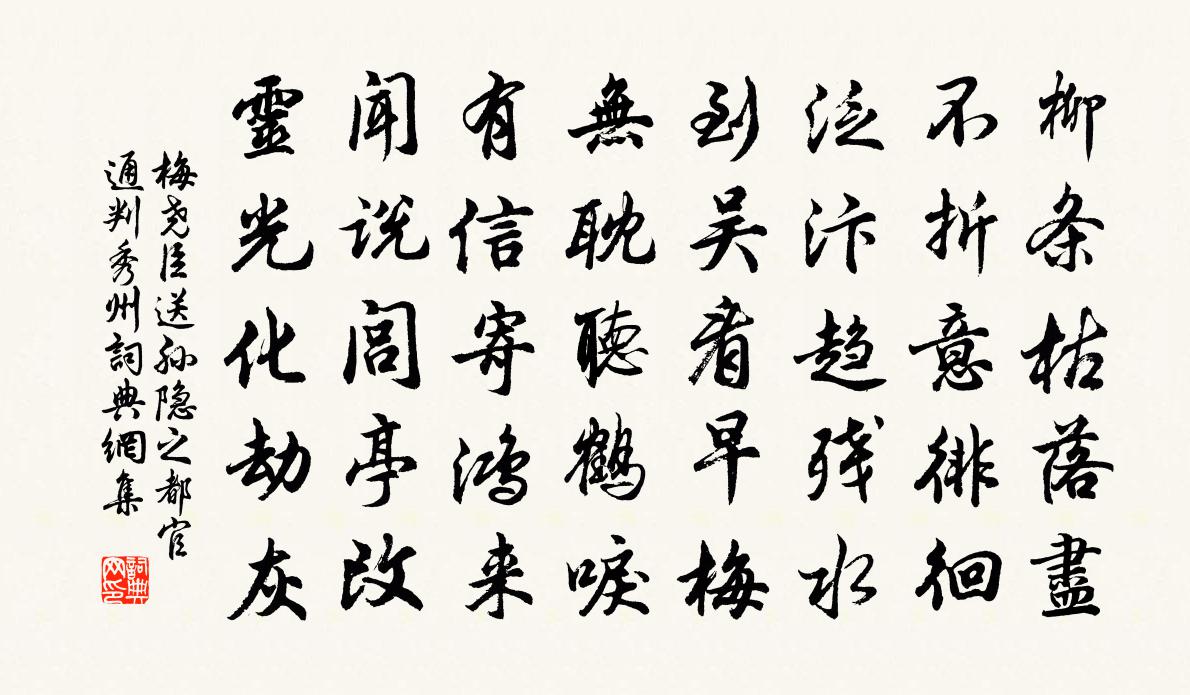 柳条枯落盡
不折意徘徊
泛汴趋残水
到吴看早梅
無耽聽鶴唳
有信寄鴻来
聞说闾亭改
靈光化劫灰
梅尧臣送孙隐之都官
通判秀州詞典網集
詞典網印